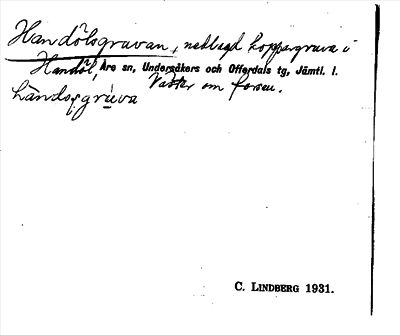 Handölsgruvan, nedlagd koppargruva i
Handöl, Åre sn, Undersåkers och Offerdals tg, Jämtl. l.
Väster om forsen.
hàndsgrúva
C. LINDBERG 1931.